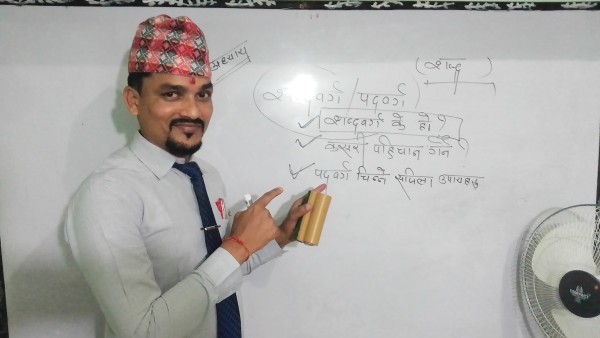 अध्याय
(शब्द)
शब्दवर्ग / पदवर्ग
शब्दवर्ग के हो?
कसरी पहिचान गर्ने
पदवर्ग चिन्ने सजिला उपायहरू